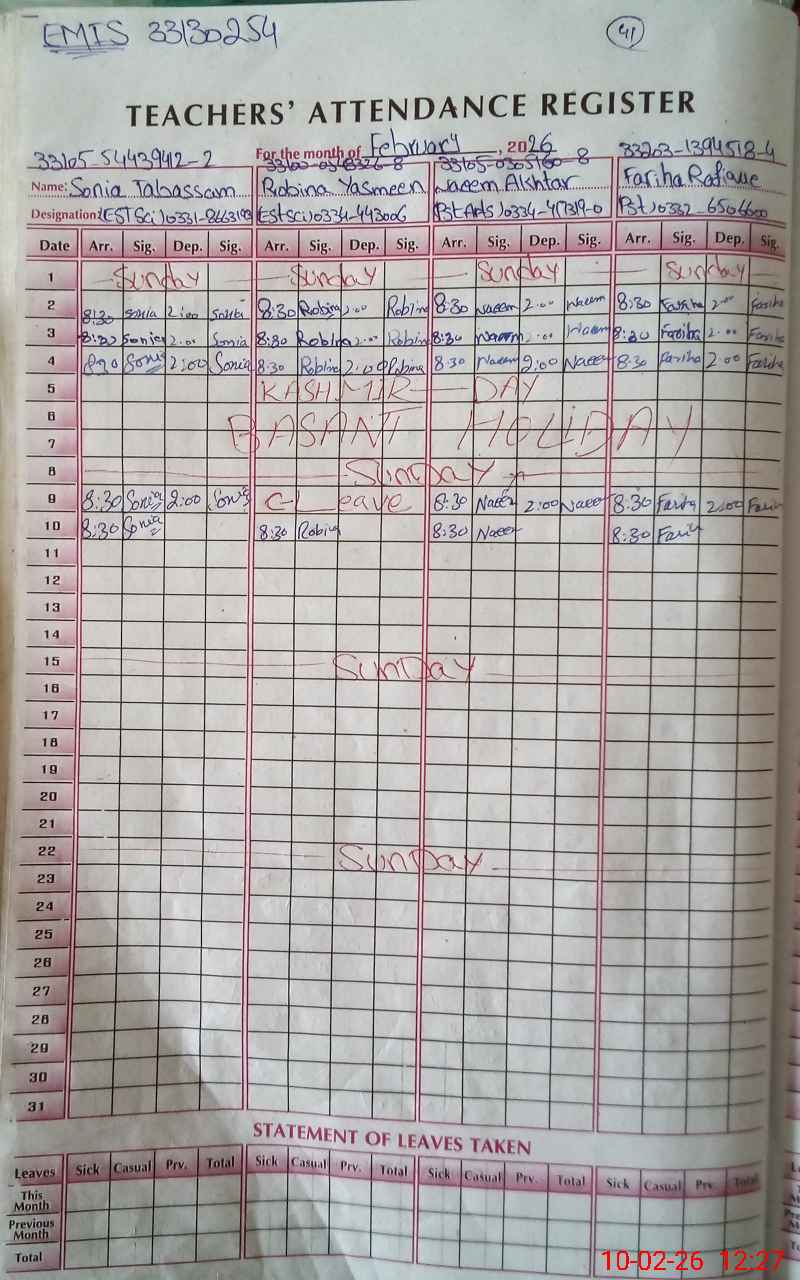 EMIS 33130254 41
TEACHERS' ATTENDANCE REGISTER
For the month of February, 2026
33105-54439412-2 33105-0305160-8 33203-1394518-4
Name: Sonia Tabassam Robina Yasmeen Naeem Akhtar Fariha Rafique
Designation: (EST Sci) 0331-8663193 (Est Sci) 0334-443006 (Pst Arts) 0334-417319-0 (Pst) 0332-6506600
Date Arr. Sig. Dep. Sig. Arr. Sig. Dep. Sig. Arr. Sig. Dep. Sig. Arr. Sig. Dep. Sig.
1 Sunday Sunday Sunday Sunday
2 8:30 Sonia 2:00 Sonia 8:30 Robina 2:00 Robina 8:30 Naeem 2:00 Naeem 8:30 Fariha 2:00 Fariha
3 8:30 Sonia 2:00 Sonia 8:30 Robina 2:00 Robina 8:30 Naeem 2:00 Naeem 8:30 Fariha 2:00 Fariha
4 8:30 Sonia 2:00 Sonia 8:30 Robina 2:00 Robina 8:30 Naeem 2:00 Naeem 8:30 Fariha 2:00 Fariha
5 KASHMIR DAY
6 BASANT HOLIDAY
7
8 Sunday
9 8:30 Sonia 2:00 Sonia C-Leave 8:30 Naeem 2:00 Naeem 8:30 Fariha 2:00 Fariha
10 8:30 Sonia 8:30 Robina 8:30 Naeem 8:30 Fariha
11
12
13
14
15 SunDay
16
17
18
19
20
21
22 SunDay
23
24
25
26
27
28
29
30
31
STATEMENT OF LEAVES TAKEN
Leaves Sick Casual Prv. Total Sick Casual Prv. Total Sick Casual Prv. Total Sick Casual Prv. Total
This Month
Previous Month
Total
10-02-26 12:27